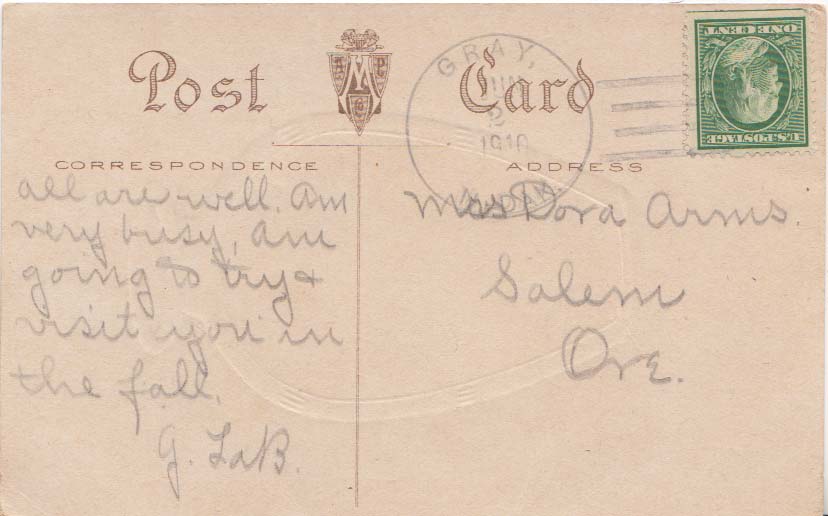 Post Card
GRAY,
JUN
2
1910
IDAHO
ONE CENT
U.S. POSTAGE
CORRESPONDENCE
ADDRESS
all are well. Am
very busy, am
going to try +
visit you in
the fall.
G. LaB.
Mrs Dora Arms.
Salem
Ore.